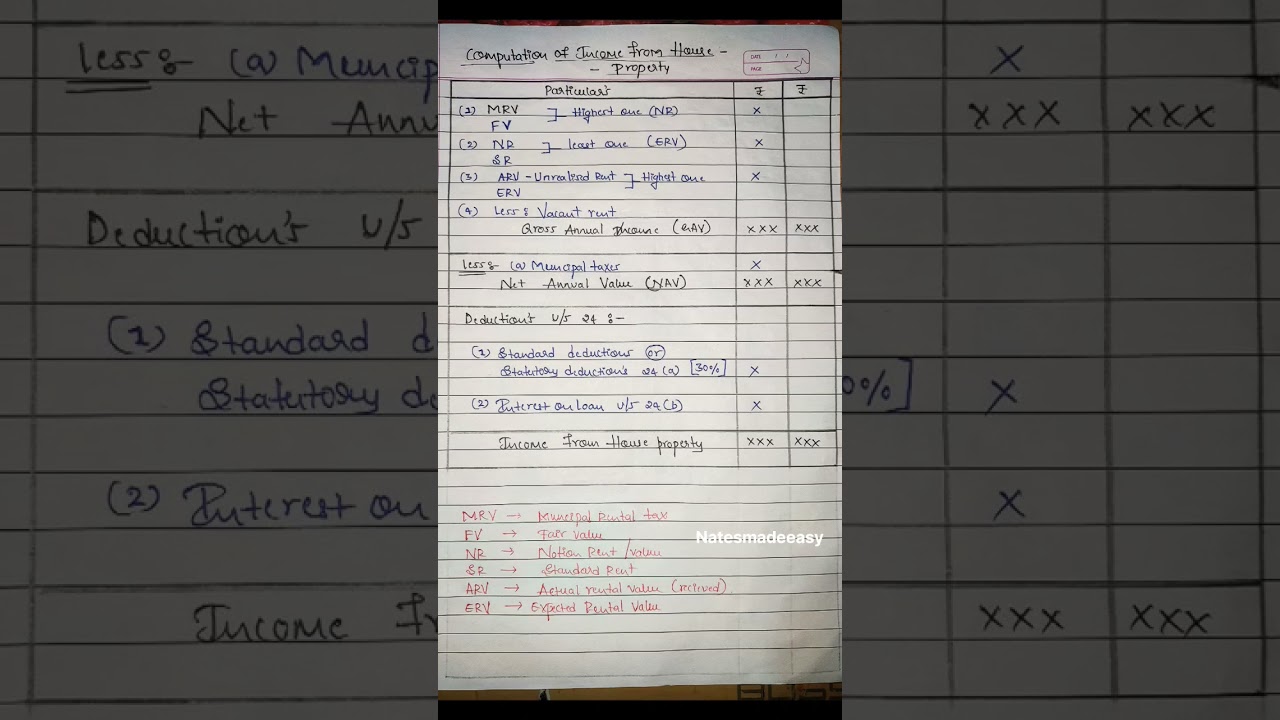 Computation of Income from House -
- Property
DATE / /
PAGE
Particular's ₹ ₹
(1) MRV ] Highest one (NR) X
FV
(2) NR ] least one (ERV) X
SR
(3) ARV - Unrealised Rent ] Highest one X
ERV
(4) Less: Vacant rent
Gross Annual Income (GAV) XXX XXX
Less:- (a) Muncipal taxes X
Net Annual Value (NAV) XXX XXX
Deduction's U/S 24 :-
(1) Standard deductions or
Statutory deduction's 24 (a) [30%] X
(2) Interest on loan U/S 24(b) X
Income from House property XXX XXX
MRV → Muncipal Rental tax
FV → Fair value
NR → Notion Rent / value
SR → Standard Rent
ARV → Actual rental value (recieved)
ERV → Expected Rental Value
Natesmadeeasy
Less:- (a) Muncip X
Net Annu XXX XXX
Deduction's U/S
(1) Standard d
Statutory de 0%] X
(2) Interest on X
Income Fr XXX XXX